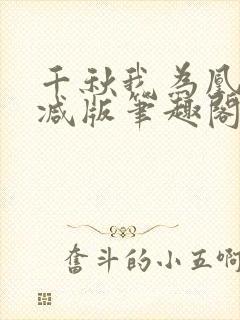 千秋我为凰
减版笔趣阁
奋斗的小五啊